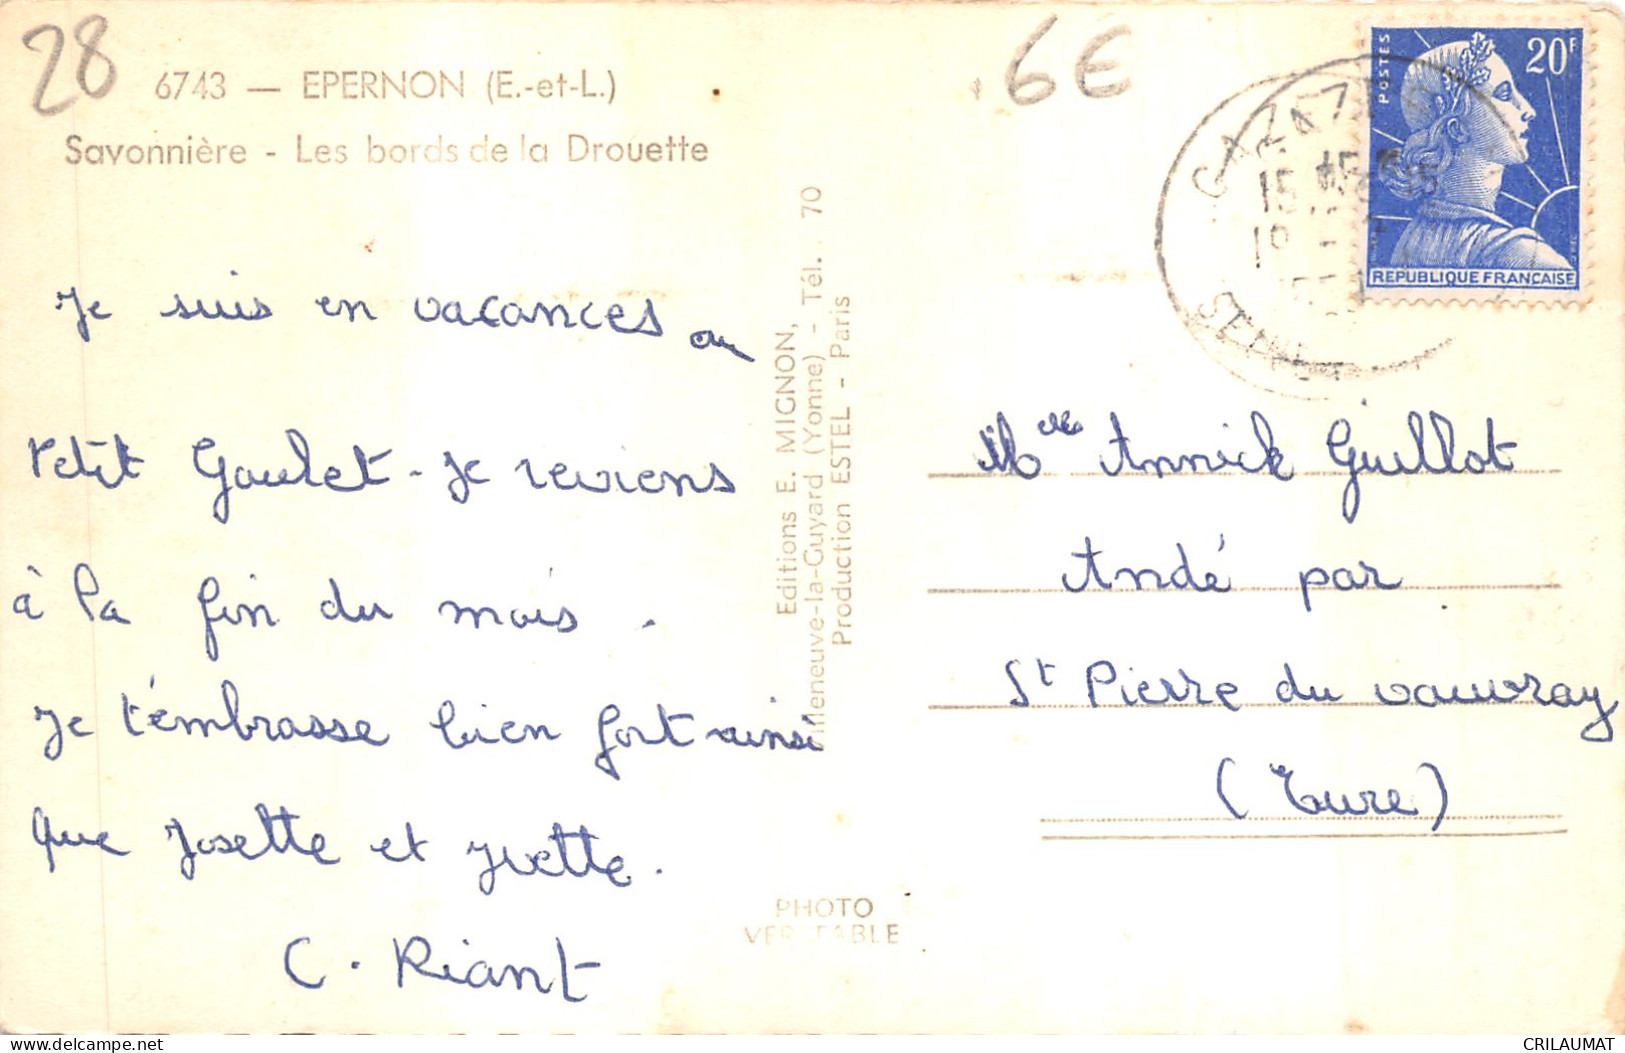 28
6743 — EPERNON (E.-et-L.)
Savonnière - Les bords de la Drouette
6€
POSTES
20F
REPUBLIQUE FRANÇAISE
15
Je suis en vacances au
Petit Goulet - Je reviens
à la fin du mois.
Je t'émbrasse bien fort ainsi
que Josette et Yvette.
C. Riant
Editions E. MIGNON,
Villeneuve-la-Guyard (Yonne) - Tél. 70
Production ESTEL - Paris
PHOTO
VERITABLE
Melle Annick Guillot
Andé par
St Pierre du vauvray
(Eure)
delcampe.net
CRILAUMAT